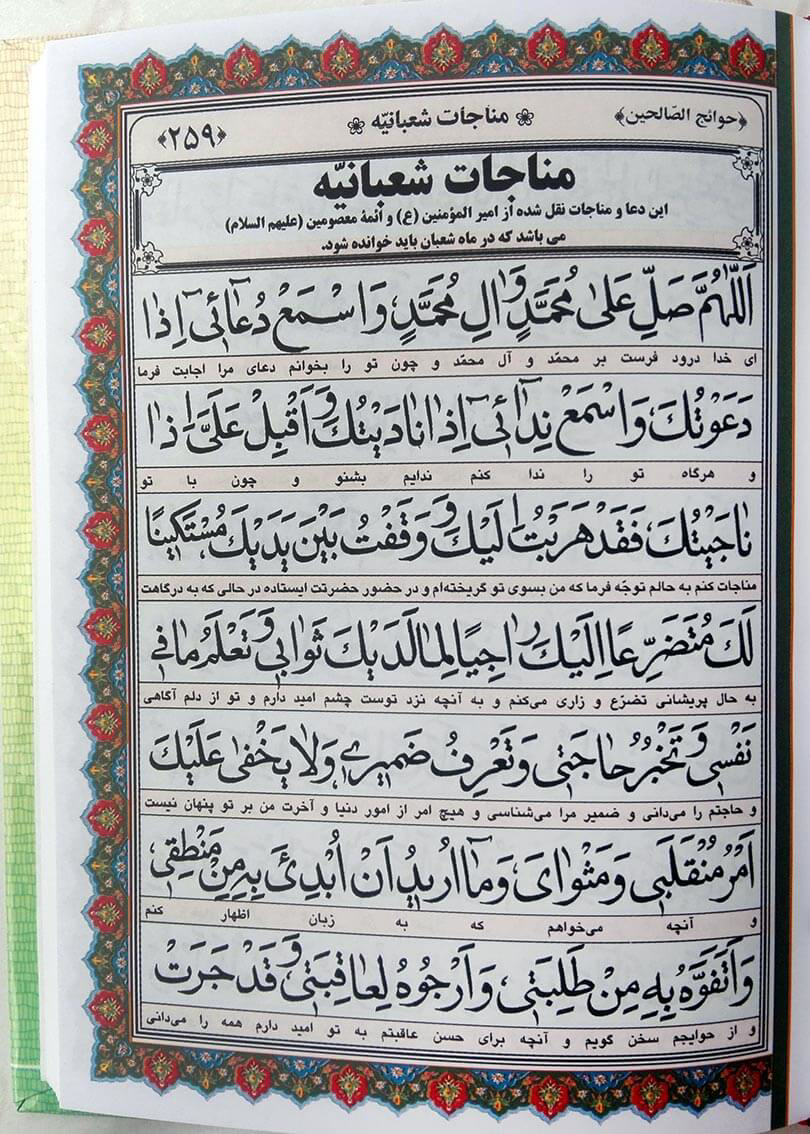 ﴿حوائج الصّالحین﴾ مناجات شعبانیّه ﴿۲۵۹﴾
مناجات شعبانیّه
این دعا و مناجات نقل شده از امیر المؤمنین (ع) و ائمهٔ معصومین (علیهم السلام)
می باشد که در ماه شعبان باید خوانده شود.
اَللّٰهُمَّ صَلِّ عَلىٰ مُحَمَّدٍ وَاٰلِ مُحَمَّدٍ، وَاسْمَعْ دُعٰٓائى اِذٰا
ای خدا درود فرست بر محمّد و آل محمّد و چون تو را بخوانم دعای مرا اجابت فرما
دَعَوْتُكَ، وَاسْمَعْ نِدٰٓائى اِذٰا نٰادَيْتُكَ، وَاَقْبِلْ عَلَىَّ اِذٰا
و هرگاه تو را ندا کنم ندایم بشنو و چون با تو
نٰاجَيْتُكَ، فَقَدْ هَرَبْتُ اِلَيْكَ، وَوَقَفْتُ بَيْنَ يَدَيْكَ، مُسْتَكينًا
مناجات کنم به حالم توجّه فرما که من بسوی تو گریخته‌ام و در حضور حضرتت ایستاده در حالی که به درگاهت
لَكَ، مُتَضَرِّعًا اِلَيْكَ، رٰاجِيًا لِمٰا لَدَيْكَ ثَوٰابى، وَتَعْلَمُ مٰا فى
به حال پریشانی تضرّع و زاری می‌کنم و به آنچه نزد توست چشم امید دارم و تو از دلم آگاهی
نَفْسى، وَتَخْبُرُ حٰاجَتى، وَتَعْرِفُ ضَميرى، وَلٰا يَخْفىٰ عَلَيْكَ
و حاجتم را می‌دانی و ضمیر مرا می‌شناسی و هیچ امر از امور دنیا و آخرت من بر تو پنهان نیست
اَمْرُ مُنْقَلَبى وَمَثْوٰاىَ، وَمٰٓا اُريدُ اَنْ اُبْدِئَ بِهِ مِنْ مَنْطِقى،
و آنچه می‌خواهم که به زبان اظهار کنم
وَاَتَفَوَّهُ بِهِ مِنْ طَلِبَتى، وَاَرْجُوهُ لِعٰاقِبَتى، وَقَدْ جَرَتْ
و از حوایجم سخن گویم و آنچه برای حسن عاقبتم به تو امید دارم همه را می‌دانی